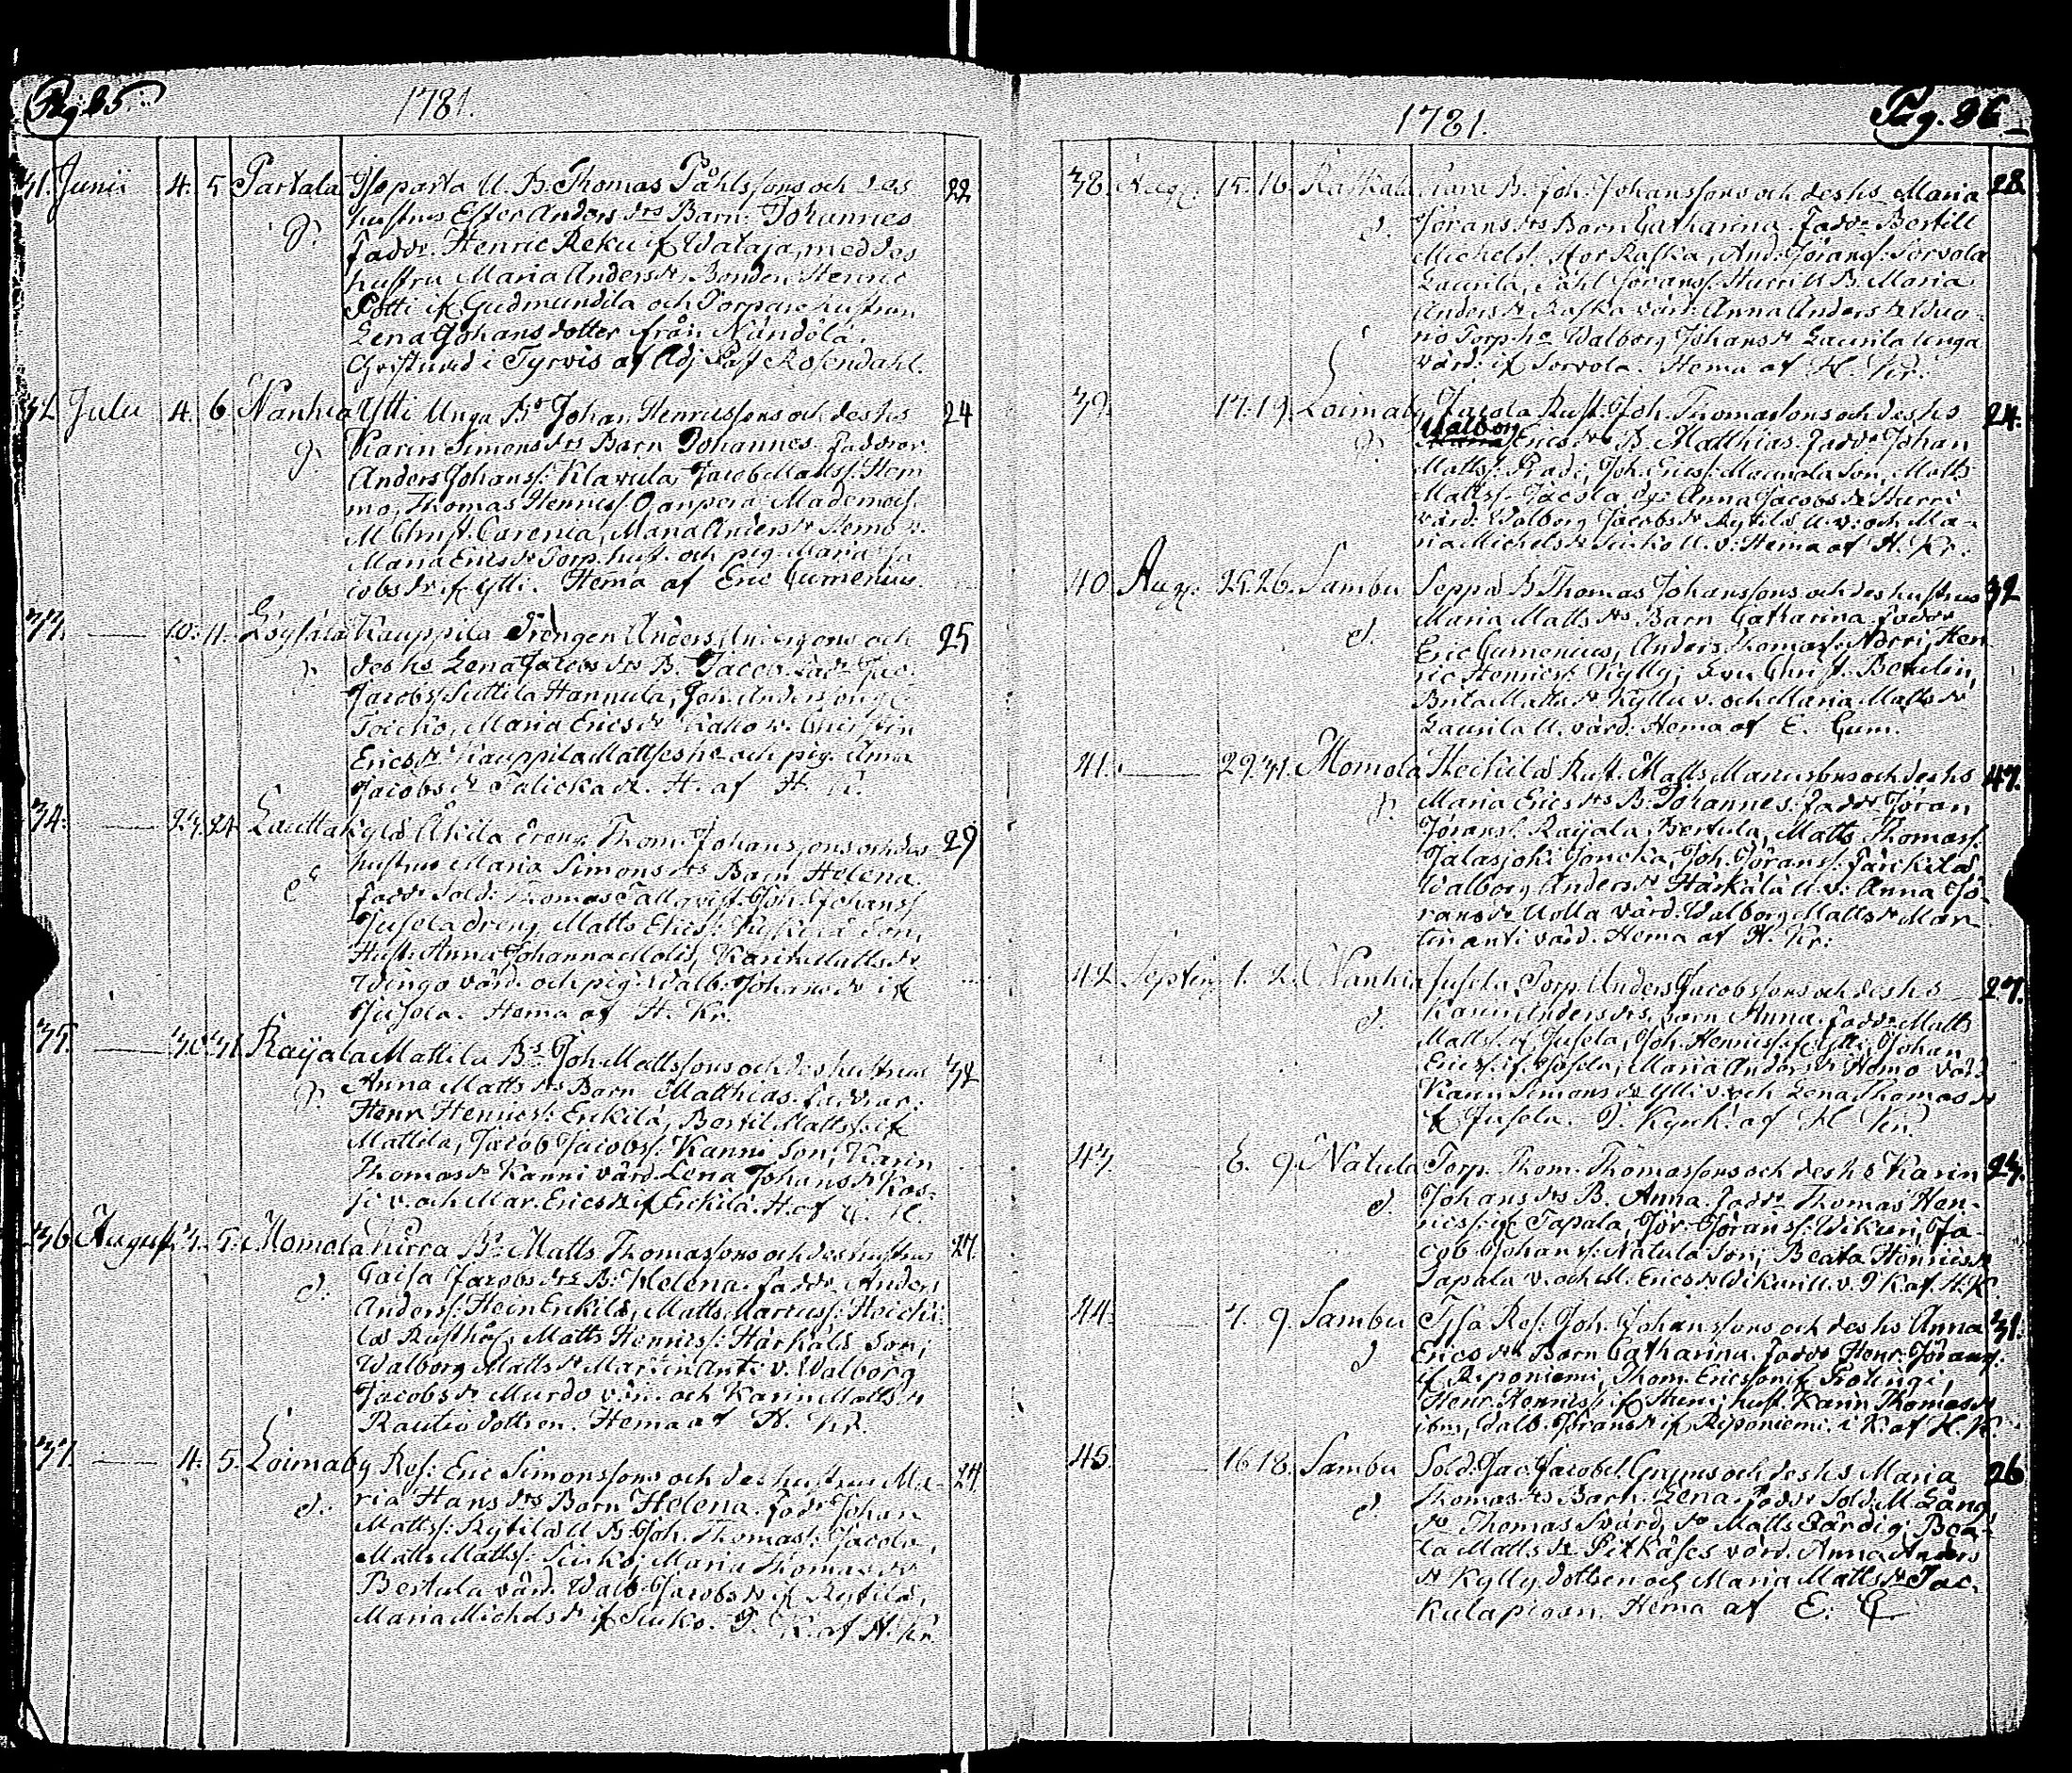 Pag. 85.
1781.
31. Junii 4. 5. Partala Isoparta U. B. Thomas Påhlssons och des 22
hustrus Ester Anders drs Barn: Johannes
Faddr. Henric Reku if Wataja, med des
hustru Maria Andersdr Bonden Henric
Potti if Gudmundila och Torpare hustrun
Lena Johansdotter från Nåndölä.
Christnad i Tyrvis af Adj. Past. Rosendahl.
32. Julii 4. 6. Nanhia Ylli Unga Bs Johan Henricssons och des hs 24
Karin Simonsdrs Barn Johannes. Faddrar.
Anders Johanss: Klavula, Jacob Mattss: Hem
mo, Thomas Henricss. Ojanperä: Mademois.
M. Christ. Carenia, Maria Andersdr Hemo v.
Maria Ericsdr Torp. hust. och pig. Maria Ja
cobsdr if Ylli. Hema af Eric Cumenius.
33. 10. 11. Kauppila Drengen Anders och 25
des hs Lena Jacobs drs B. Jacob. Fadr Jac.
Jacobss. Suttila Hannula, Joh. Anderss
Maria Ericsdr v. Christin
Ericsdr Kauppila Mattses hs och pig. Anna
Jacobsdr. H. af H. K.
34. 23. 24. Lautta kylä Åkila dreng. Thom. Johanssons och des 29
hustrus Maria Simonsdrs Barn Helena.
Faddr Sold: Thomas Tallqvist. Joh. Johanss
Jusela dreng, Matts Ericss: son;
Hust. Anna Johanna Molis, Karin Mattsdr
Wingo värd. och pig. Walb. Johansdr if
Jusela. Hema af H. Kr.
35. 30. 31. Raijala Mattila Bs Joh. Mattssons och des hustrus 32
Anna Mattsdrs Barn Matthias. Faddrar:
Henr. Henricss: Erikilä, Bertil Mattss: if
Mattila, Jacob Jacobss: Kanni Son; Karin
Thomasdr Kanni värd. Lena Johansdr Kos-
ji v. och Mar. Ericsdr if Erkilä. H. af H.
36 August. 3. 5. Momola Bs Matts Thomassons och des hustrus 27.
Caisa Jacobsdrs B: Helena. Faddr Anders
Anderss: Hein Erikilä, Matts Marcuss: Heicki
lä Rusth. Matts Henricss: Härkälä Son;
Walborg Mattsdr Martin Anti v. Walborg
Jacobsdr Murdo vär. och Karin Mattsdr
Rautio dottren. Hema af H. Kr.
37. 4. 5. Loimaby Ros: Eric Simonssons och des hustrus Ma- 24
ria Hansdrs Barn Helena. Fadr Johan
Mattss: Rytilä U. B. Joh. Thomass: Jacola,
Matts Mattss: Siuko; Maria Thomasdr
Bertula värd. Walb. Jacobsdr if Rytilä,
Maria Michelsdr if Siuko. I K. af H. Kr.
Pag. 86.
1781.
38. Aug. 15. 16. Raskala B. Joh. Johanssons och des hs Maria 28
Jöransdrs Barn Catharina. Faddr Bertill
Michelss. Stor Raska, And. Jöranss: Sorvola
Laurila, Påhl Jöranss. Hurri U. B. Maria
Andersdr Raska värd. Anna Andersdr
Torp. hs Walborg Johansdr Laurila Unga
värd. if Sorvola. Hema af H. Kr.
39. 17. 19. Loimaby Jacola Rust. Joh. Thomassons och des hs 24.
Walborg Ericsdrs B. Matthias. Faddr Johan
Mattss: Pradi, Joh. Ericss: Maurola Son, Matts
Mattss. Jacola Anna Jacobsdr Hurri
värd. Walborg Jacobsdr Rytilä U. v: och Ma-
ria Michelsdr Siuko U. v: Hema af H. Kr:
40. Aug. 25. 26. Sambu Seppä B. Thomas Johanssons och des hustrus 32
Maria Mattsdrs Barn Catharina. Faddr
Eric Cumenius, Anders Thomass. Norri, Hen
ric Henricss. Kylly; Eva Christ. Betulin,
Brita Mattsdr Kyllu v. och Maria Mattsdr
Laurila U. värd. Hema af E. Cum.
41. 29. 31. Momola Heikilä Rust. Matts Marcussons och des hs 47.
Maria Ericsdrs B. Johannes. Faddr Jöran
Jöranss. Raijala Bertula, Matts Thomass.
Jalasjoki Joncka, Joh. Jöranss. Färckilä,
Walborg Andersdr Härkälä U. v: Anna Jö-
ransdr Uolla värd. Walborg Mattsdr Mar
tin anti värd. Hema af H. Kr:
42. Septbr. 1. 2. Nanhia Jusela Torp. Anders Jacobssons och des hs 27.
Karin Andersdrs Barn Anna. Faddr Matts
Mattss. if Jusela, Joh. Henricss: if Ylli, Johan
Ericss. if Jusela, Maria Andersdr Hemo värd.
Karin Simonsdr Ylli v. och Lena Thomasdr
if Jusela. I Kyrk. af H. Kr.
43. 6. 9. Natula Torp. Thom. Thomassons och des hs Karin 23.
Johansdrs B. Anna. Faddr Thomas Hen-
ricss: if Tapala, Jör. Jöranss: Wikuri, Ja-
cob Johanss: Natula Son; Beata Henricsdr
Tapala v. och M. Ericsdr Wikuri U. v. I K. af H. K.
44. 7. 9. Sambu Ros. Joh. Johanssons och des hs Anna 31.
Ericsdrs Barn Catharina. Faddr Henr. Jöranss.
if Riponiemi, Thom. Ericsson if
Henr. Henricss. if hust. Karin Thomasdr
ibm, Walb. Jöransdr if Riponiemi. i K. af H. K.
45. 16. 18. Sambu Sold. Jac. Jacobss. Gryms och des hs Maria 26
Thomasdrs Barn. Lena. Faddr Sold. M. Lång
dr Thomas Svärd, dr Matts Färdig; Bea-
ta Mattsdr Pitkäses värd. Anna Anders
dr Kylly dottren och Maria Mattsdr Jac.
kula pigan. Hema af E. C.